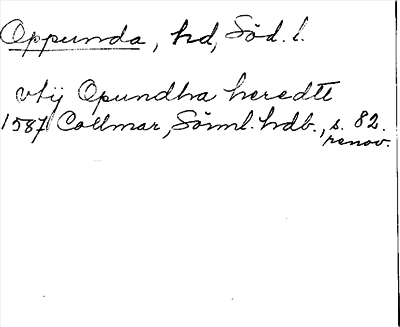 Oppunda, hd, Söd. l.
vtij Opundha heredtt
1587 Collmar, Sörml. hdb., s. 82.
renov.